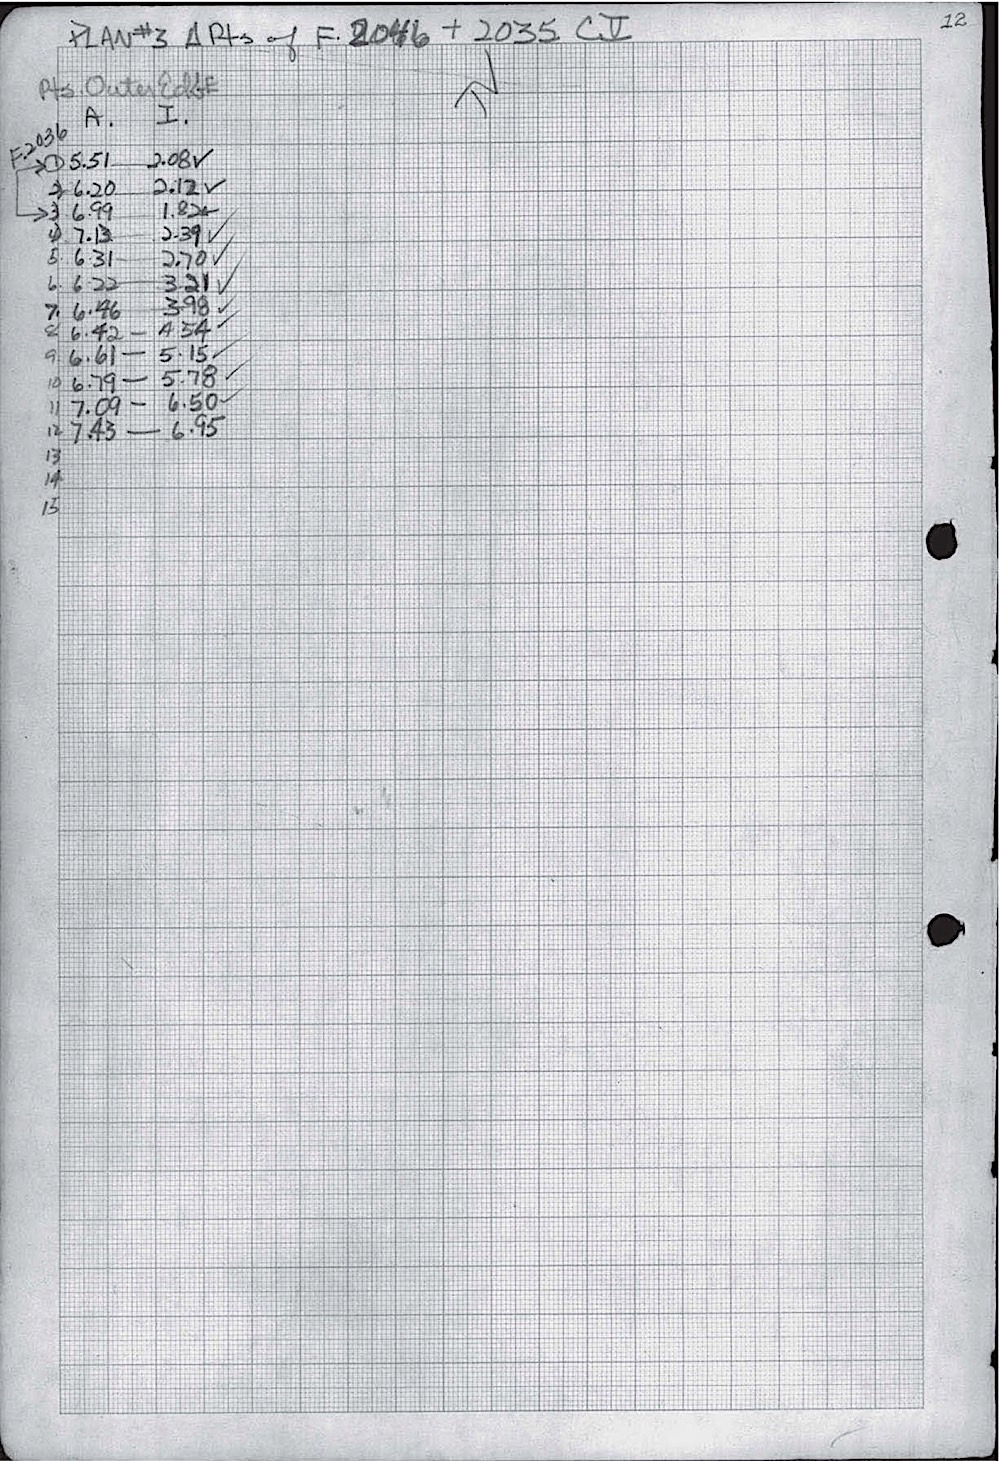 12
PLAN #3 Δ Pts of F. 2046 + 2035 CV
Pts. Outer Edge
A. I.
F.2036
① 5.51 — 2.08 ✓
2 6.20 — 2.12 ✓
3 6.99 — 1.82
4 7.13 — 2.39 ✓
5. 6.31 — 2.70 ✓
6. 6.22 — 3.21 ✓
7. 6.46 — 3.98 ✓
8 6.42 — 4.54 ✓
9. 6.61 — 5.15 ✓
10 6.79 — 5.78 ✓
11 7.09 — 6.50 ✓
12 7.43 — 6.95
13
14
15